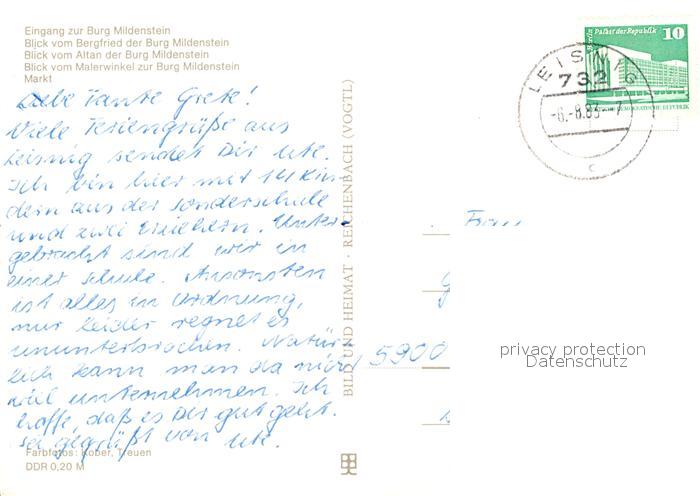 Eingang zur Burg Mildenstein
Blick vom Bergfried der Burg Mildenstein
Blick vom Altan der Burg Mildenstein
Blick vom Malerwinkel zur Burg Mildenstein
Markt
Liebe Tante Grete!
Viele Feriengrüße aus
Leisnig sendet Dir Ute.
Ich bin hier mit 14 Kin-
dern aus der Sonderschule
und zwei Erziehern. Unter-
gebracht sind wir in
einer Schule. Ansonsten
ist alles in Ordnung,
nur leider regnet es
ununterbrochen. Natür-
lich kann man da nicht
viel unternehmen. Ich
hoffe, daß es Dir gut geht.
Sei gegrüßt von Ute.
Farbfotos: Kober, Treuen
DDR 0,20 M
BILD UND HEIMAT · REICHENBACH (VOGTL)
Berlin Palast der Republik 10
DEMOKRATISCHE REPUBLIK
LEISNIG
732
-6.-8.83-7
c
Frau
5900
privacy protection
Datenschutz